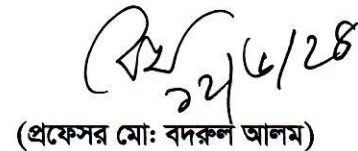 ১২/৬/২৪
(প্রফেসর মো: বদরুল আলম)